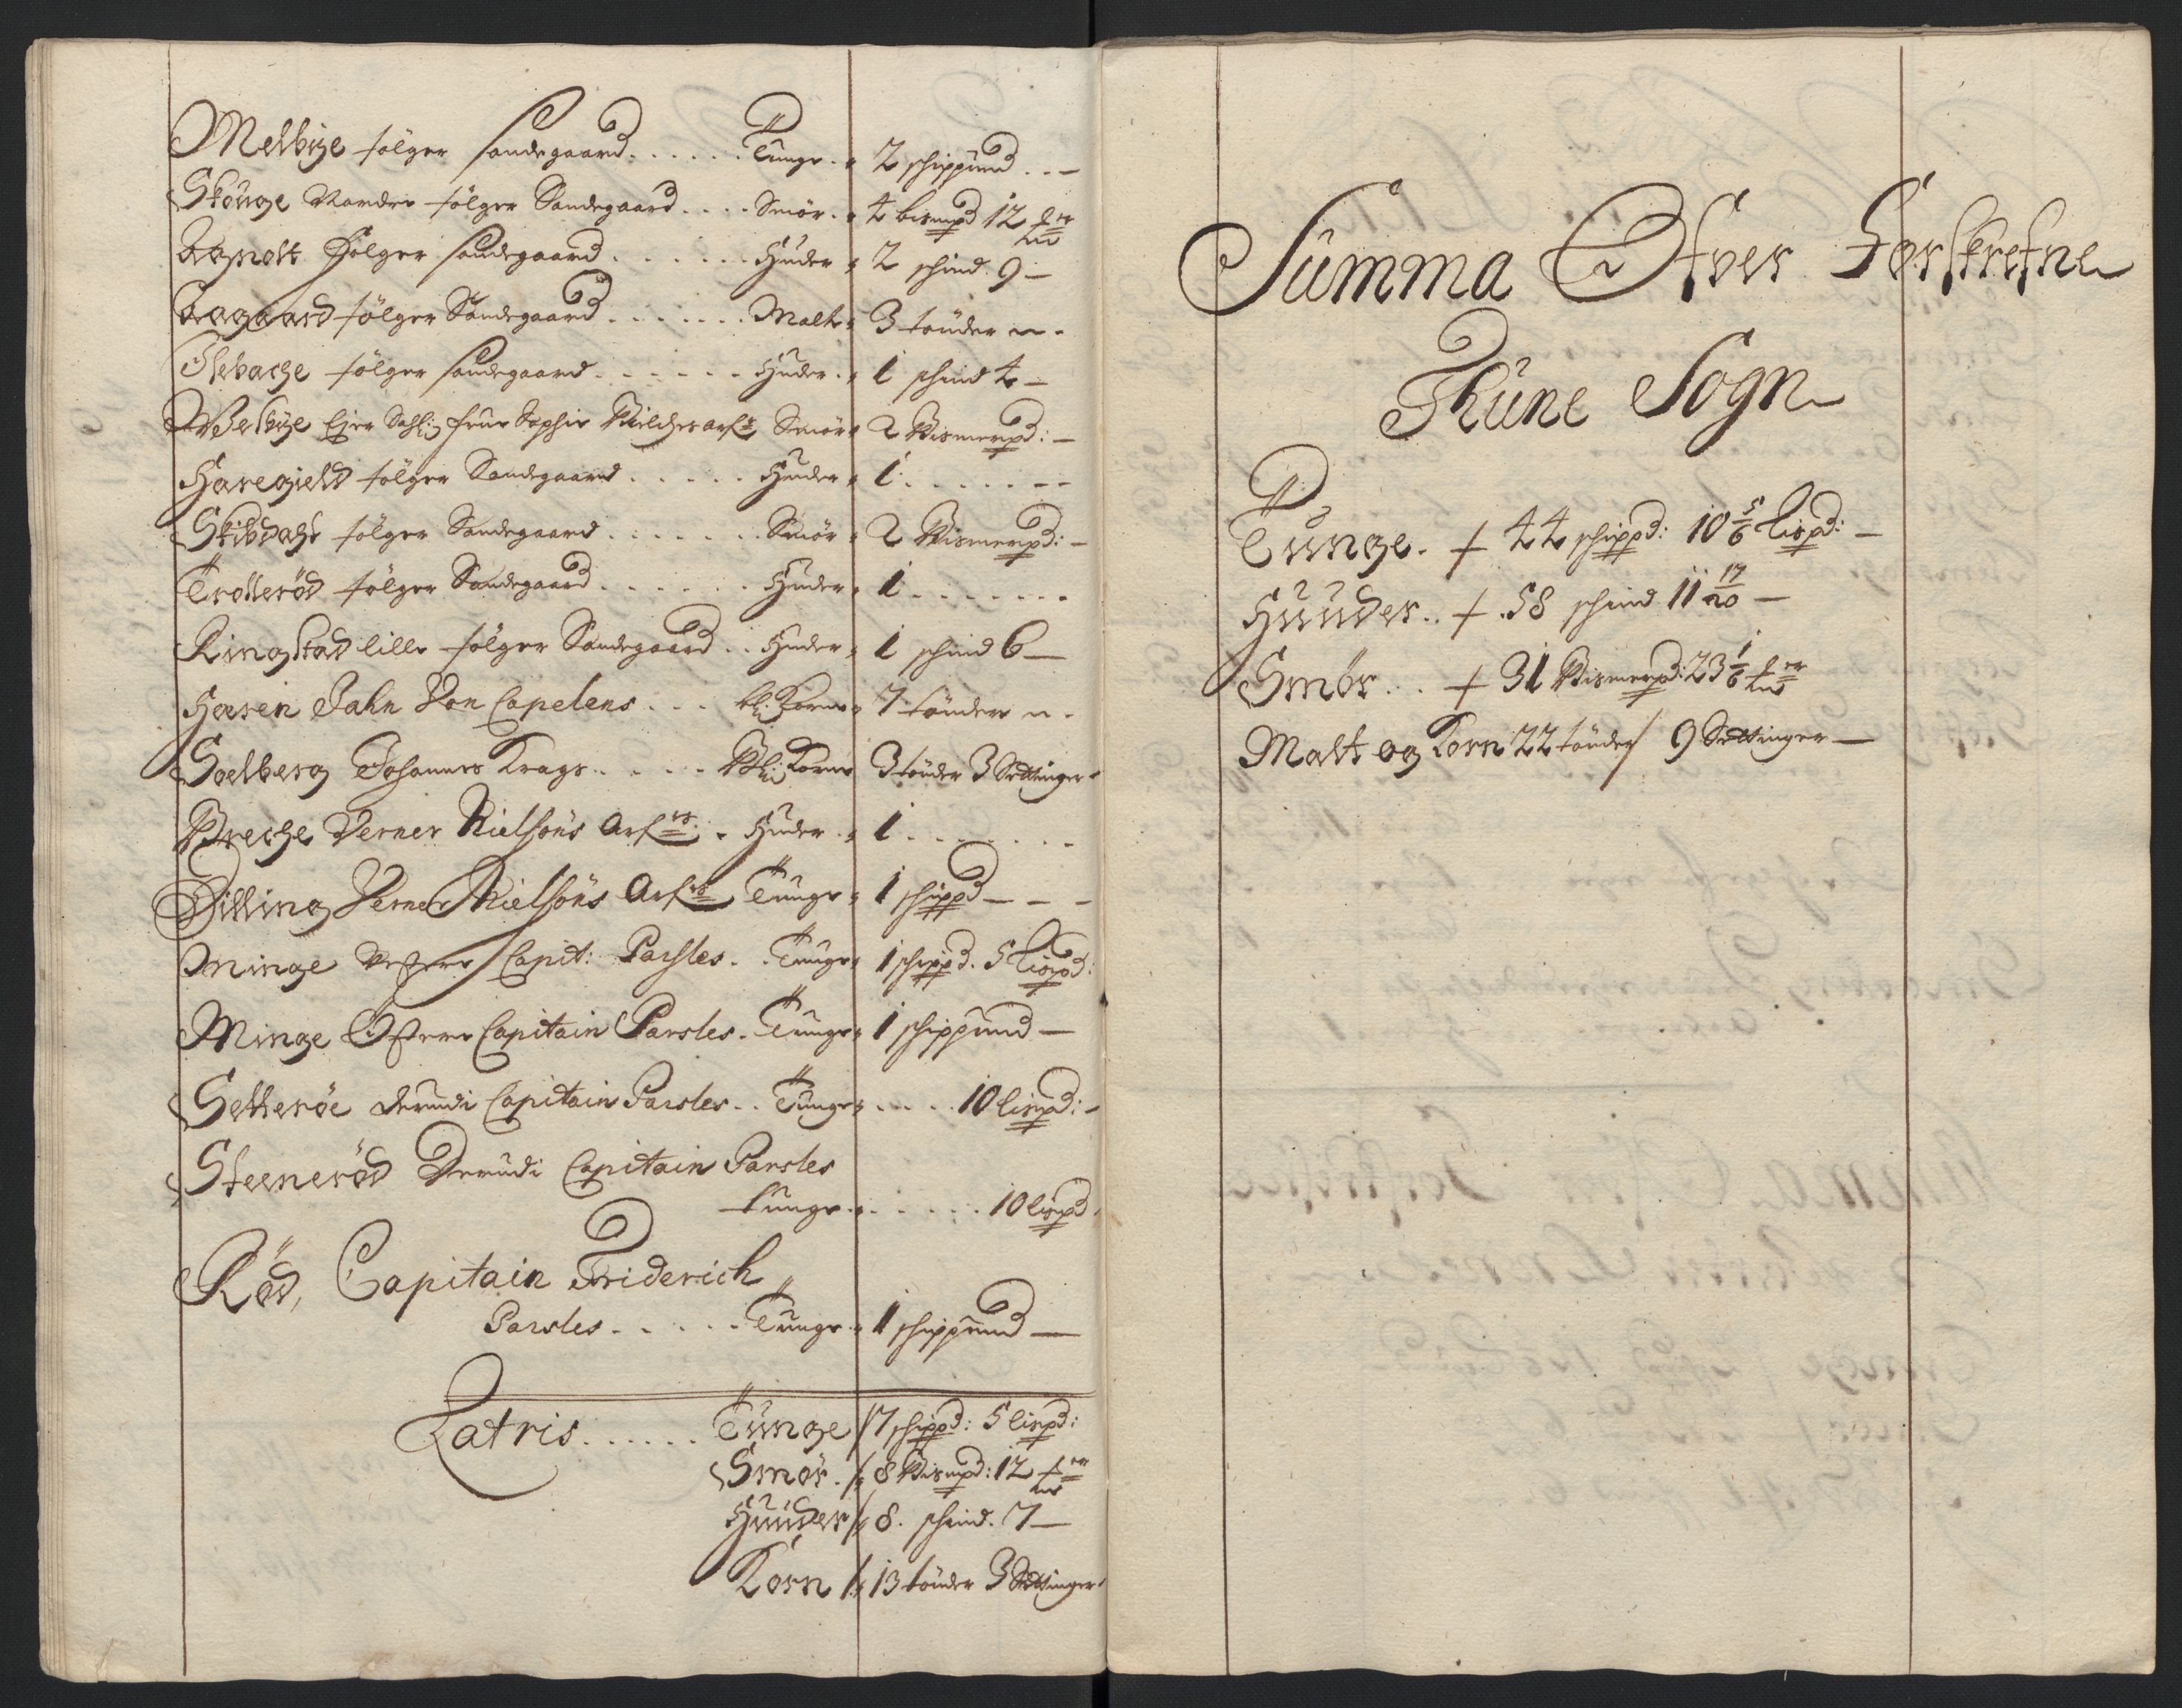 Melbÿe følger Sandegaard . . . . . . Tunge .. 2 schippund . . —
Skøuge Nordre følger Sandegaard . . . . Smör .. 4 bismpd 12
følger Sandegaard . . . . . . Huder .. 2 schind 9 —
følger Sandegaard . . . . . . . Malt .. 3 tönder
følger Sandegaard . . . . . . Huder .. 1 schind 4 —
Ejer Sahl: frue Sophie Smör .. 2 Bismerpd: —
Haregield følger Sandegaard . . . . . Huder .. 1 . . . . . . .
Skibdahl følger Sandegaard . . . . . . . Smör .. 2 Bismerpd: —
Trollerød følger Sandegaard . . . . . . Huder .. 1 . . . . . . .
Ringstad lille følger Sandegaard . . Huder .. 1 schind 6 —
Hasen Jahn Von Capelens . . . Korn .. 7 tönder
Soelberg Johannes Krags . . . . . Korn 3 tönder 3 Settinger
Breche Verner Nielsöns Arf . Huder .. 1 . . . . . . .
Dilling Verner Nielsöns Arf Tunge .. 1 schippd — — —
Minge Vestre Capit: Parsles . . Tunge .. 1 schippd. 5 Lispd:
Minge Østre Capitain Parsles . Tunge .. 1 schippund —
Setterøe Capitain Parsles . . Tunge .. . . . . 10 lispd: —
Steenerød Capitain Parsles
Tunge .. . . . . . 10 lispd
Röd, Capitain Friderich
Parsles . . . . . Tunge .. 1 schippund —
Latris . . . . . . Tunge 17 schippd: 5 lispd:
Smör . 8 Bismpd: 12
Huuder 8. schind. 7 —
Korn 13 tönder 3 Settinger
Summa Ofver Forskrefne
Thune Sogn
Tunge . 44 schippd: 10 5/6 Lispd: —
Huuder . . 58 schind 11 17/20 —
Smör . . . 31 Bismerpd: 23 1/6
Malt og Korn 22 tönder 9 Settinger —